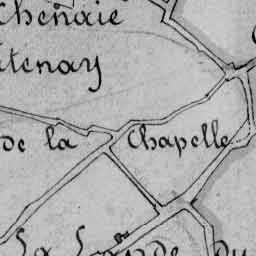 Chenaie
tenay
de la Chapelle
La Lande du